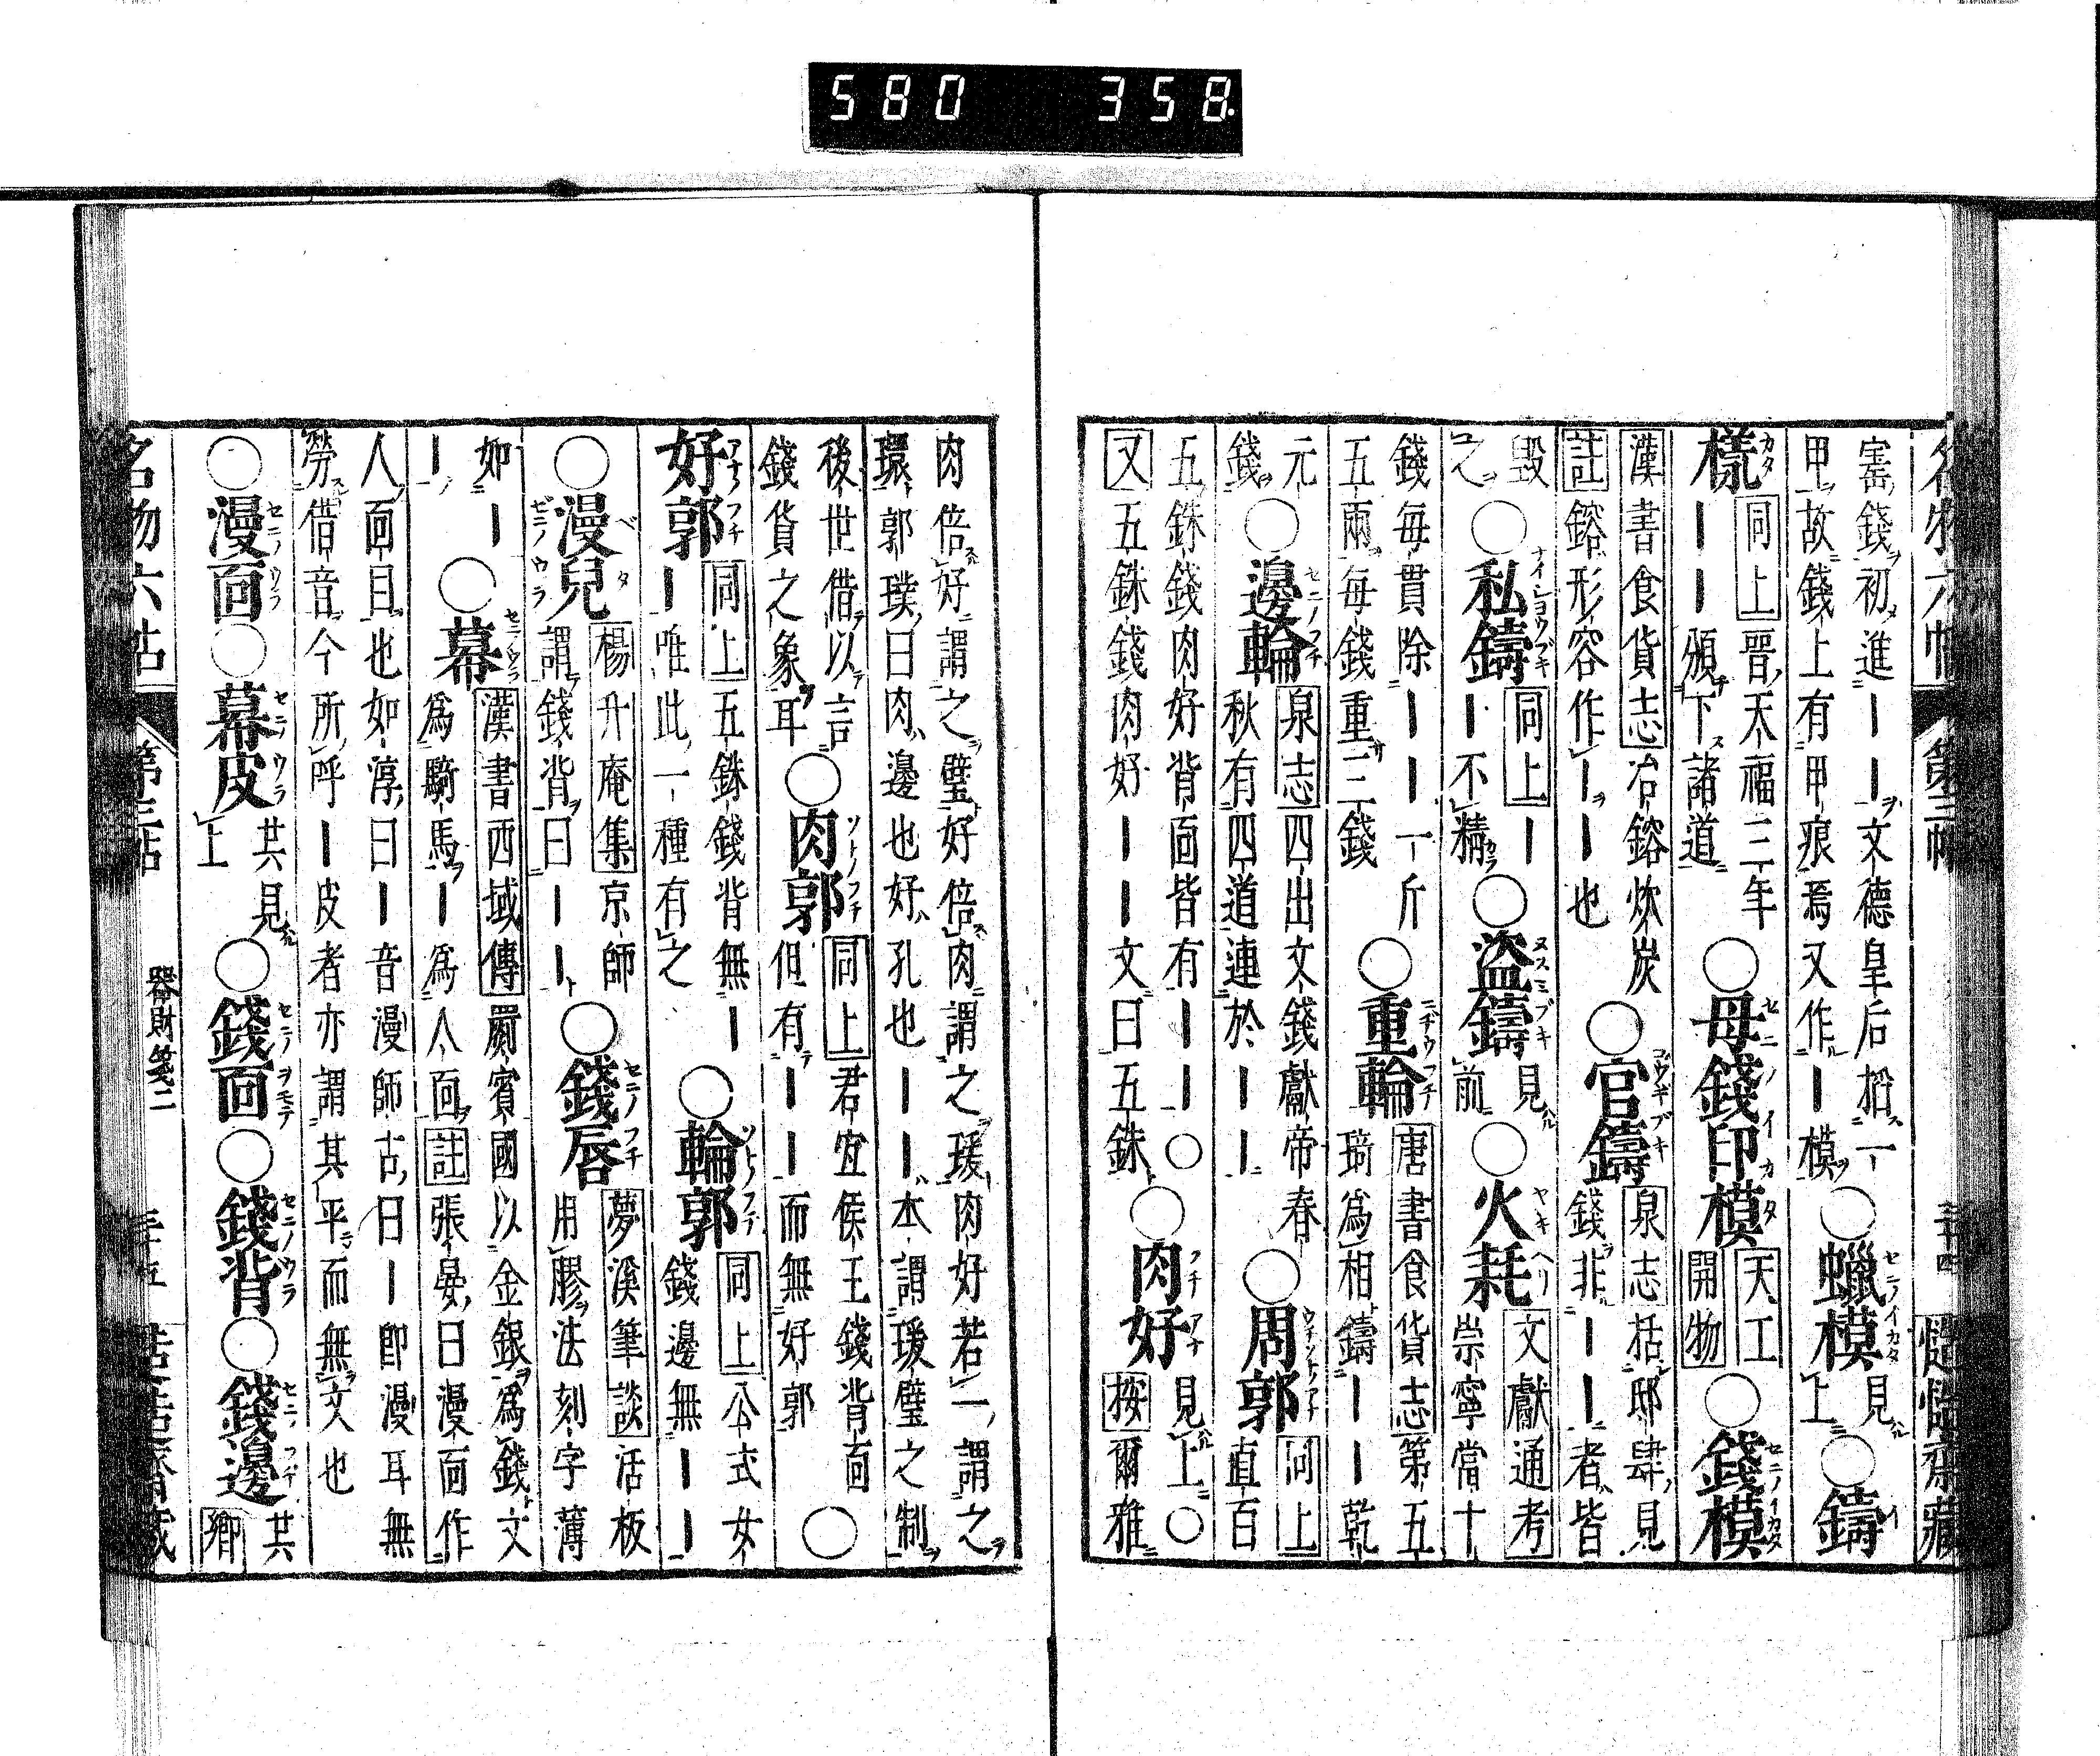 580 358
窰錢初進｜｜文德皇后掐一
甲故錢上有甲痕焉又作｜模
○蠟模
見
上
○鑄
樣
同上晋天福三年
｜｜頒下諸道
○母錢印模
天工
開物
○錢模
漢書食貨志冶鎔炊炭
註鎔形容作｜｜也
○官鑄
泉志括邸肆見
錢非｜｜者皆
毀
之
○私鑄
同上｜
｜不精
○盜鑄
見
前
○火耗
文獻通考
崇寧當十
錢每貫除｜｜一斤
五兩每錢重三錢
○重輪
唐書食貨志第五
琦爲相鑄｜｜乾
元
錢
○邊輪
泉志四出文錢獻帝春
秋有四道連於｜｜
○周郭
同上
直百
五銖錢肉好背面皆有｜｜○
又五銖錢肉好｜｜文曰五銖
○肉好
見上○
按爾雅
肉倍好謂之璧好倍肉謂之瑗肉好若一謂之
環郭璞曰肉邊也好孔也｜｜本謂瑗璧之制
後世借以言
錢貨之象耳
○肉郭
同上君宜侯王錢背面
但有｜｜而無好郭
○
好郭
同上五銖錢背無｜
｜唯此一種有之
○輪郭
同上公式女
錢邊無｜｜
○漫兒
楊升庵集京師
謂錢背曰｜｜
○錢唇
夢溪筆談活板
用膠法刻字薄
如｜
｜
○幕
漢書西域傳罽賓國以金銀爲錢文
爲騎馬｜爲人面註張晏曰漫面作
人面目也如淳曰｜音漫師古曰｜即漫耳無
勞借音今所呼｜皮者亦謂其平而無文也
○漫面○幕皮
共見
上
○錢面○錢背○錢邊
共
鄉
名物六帖 第三帖 器財箋二 三十五